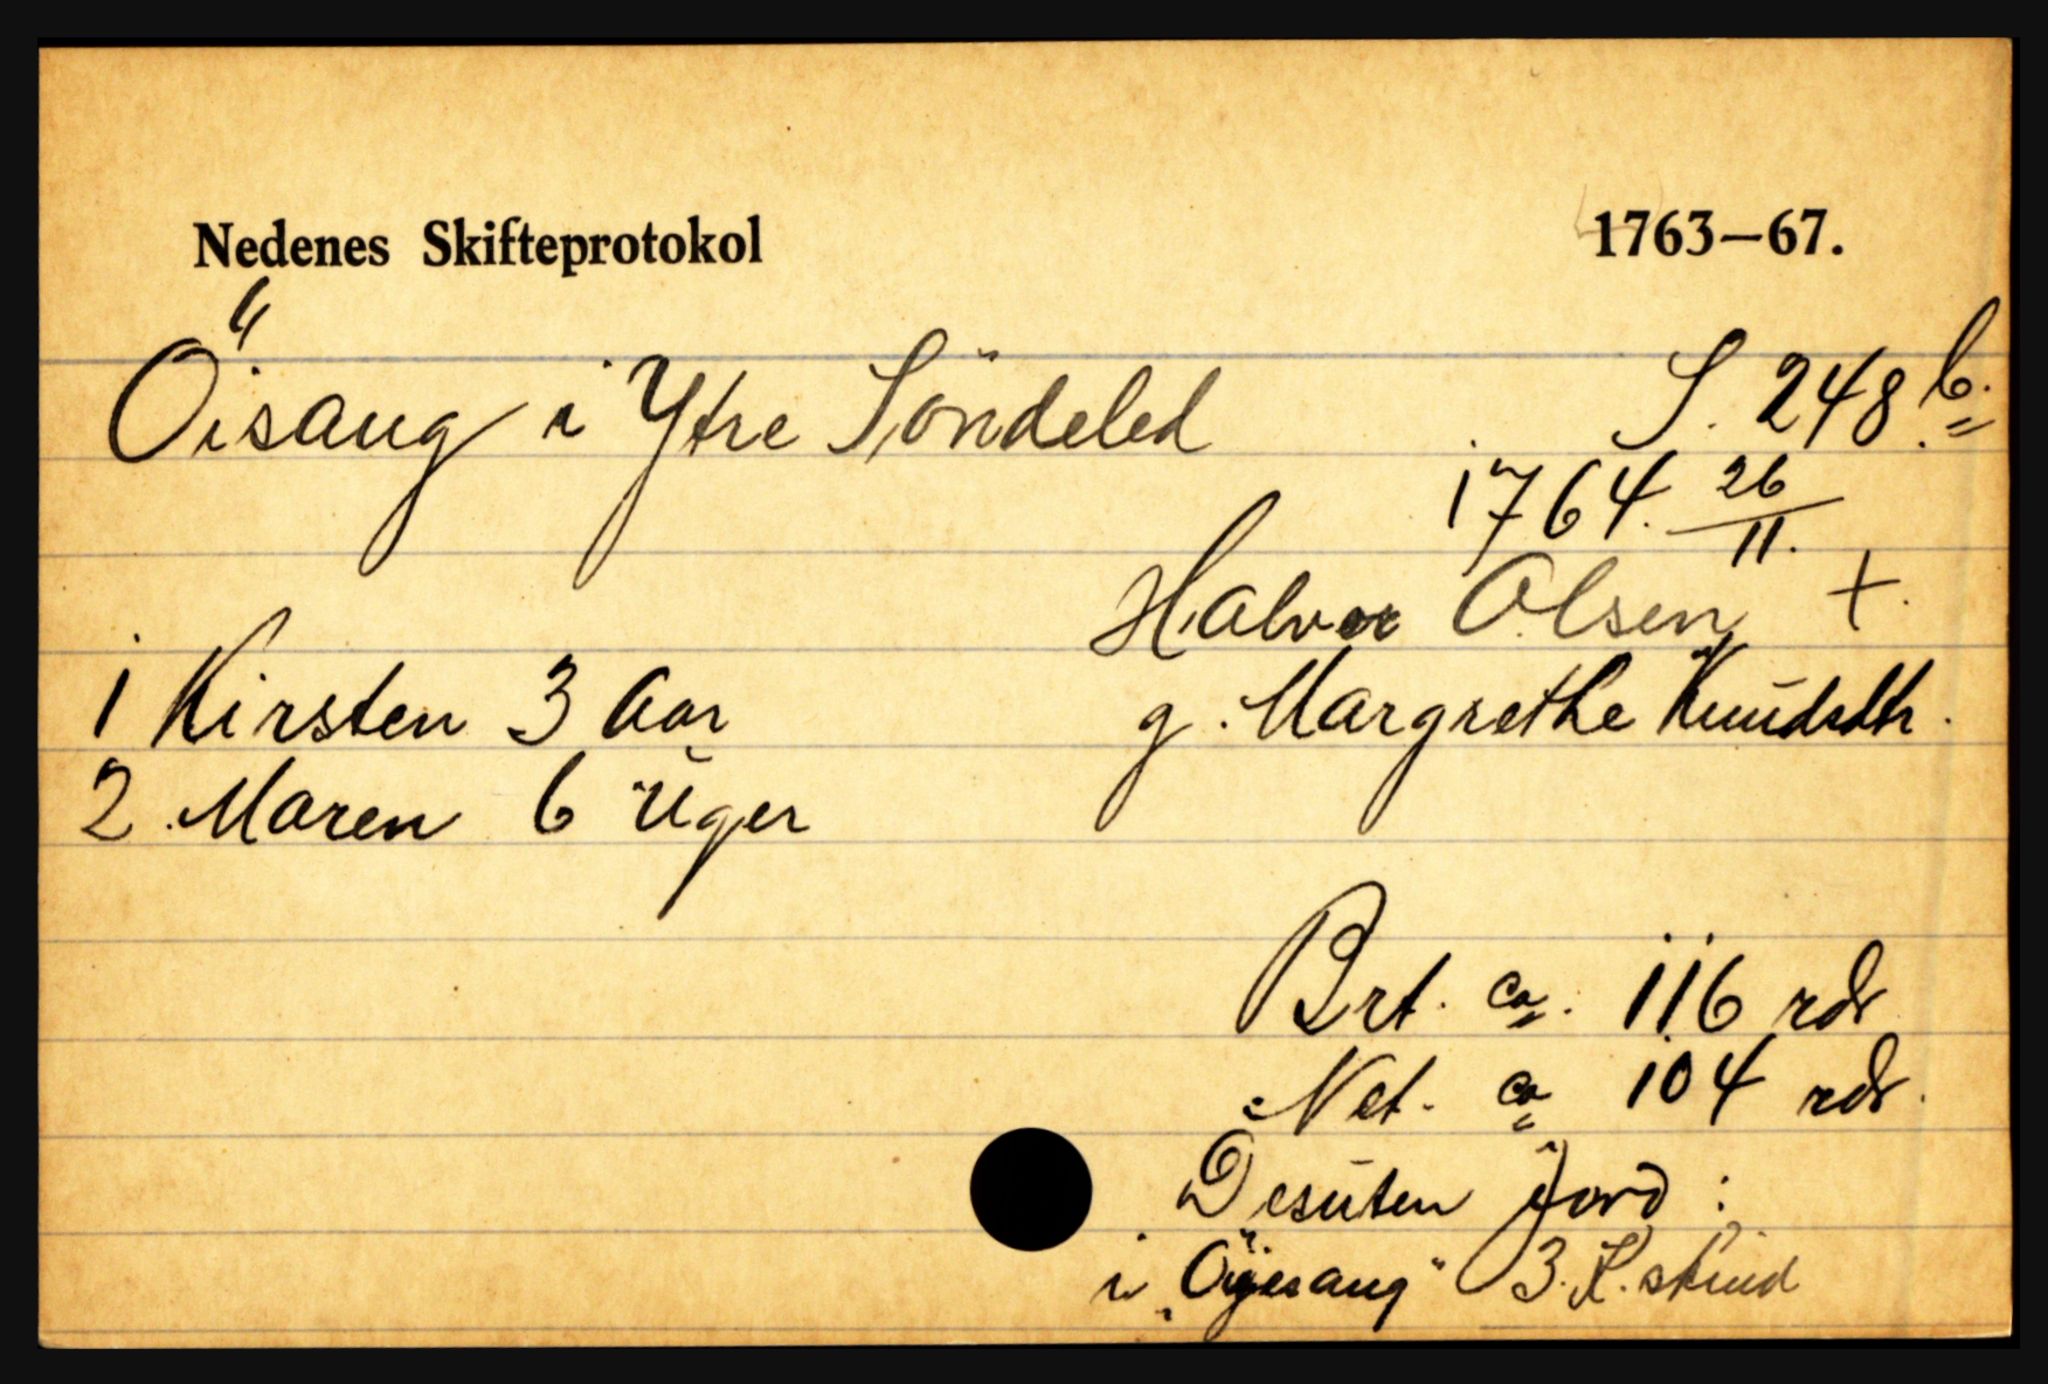 Nedenes Skifteprotokol 1763—67.
Öisang i Ytre Söndeled S. 248 b.
1764. 26/11.
Halvor Olsen +.
1 Kirsten 3 Aar g. Margrethe Knudsdtr.
2. Maren 6 Uger
Brt. ca. 116 rdr
Net. ca 104 rdr.
Desuten Jord:
i „Öigesang" 3. K. skind